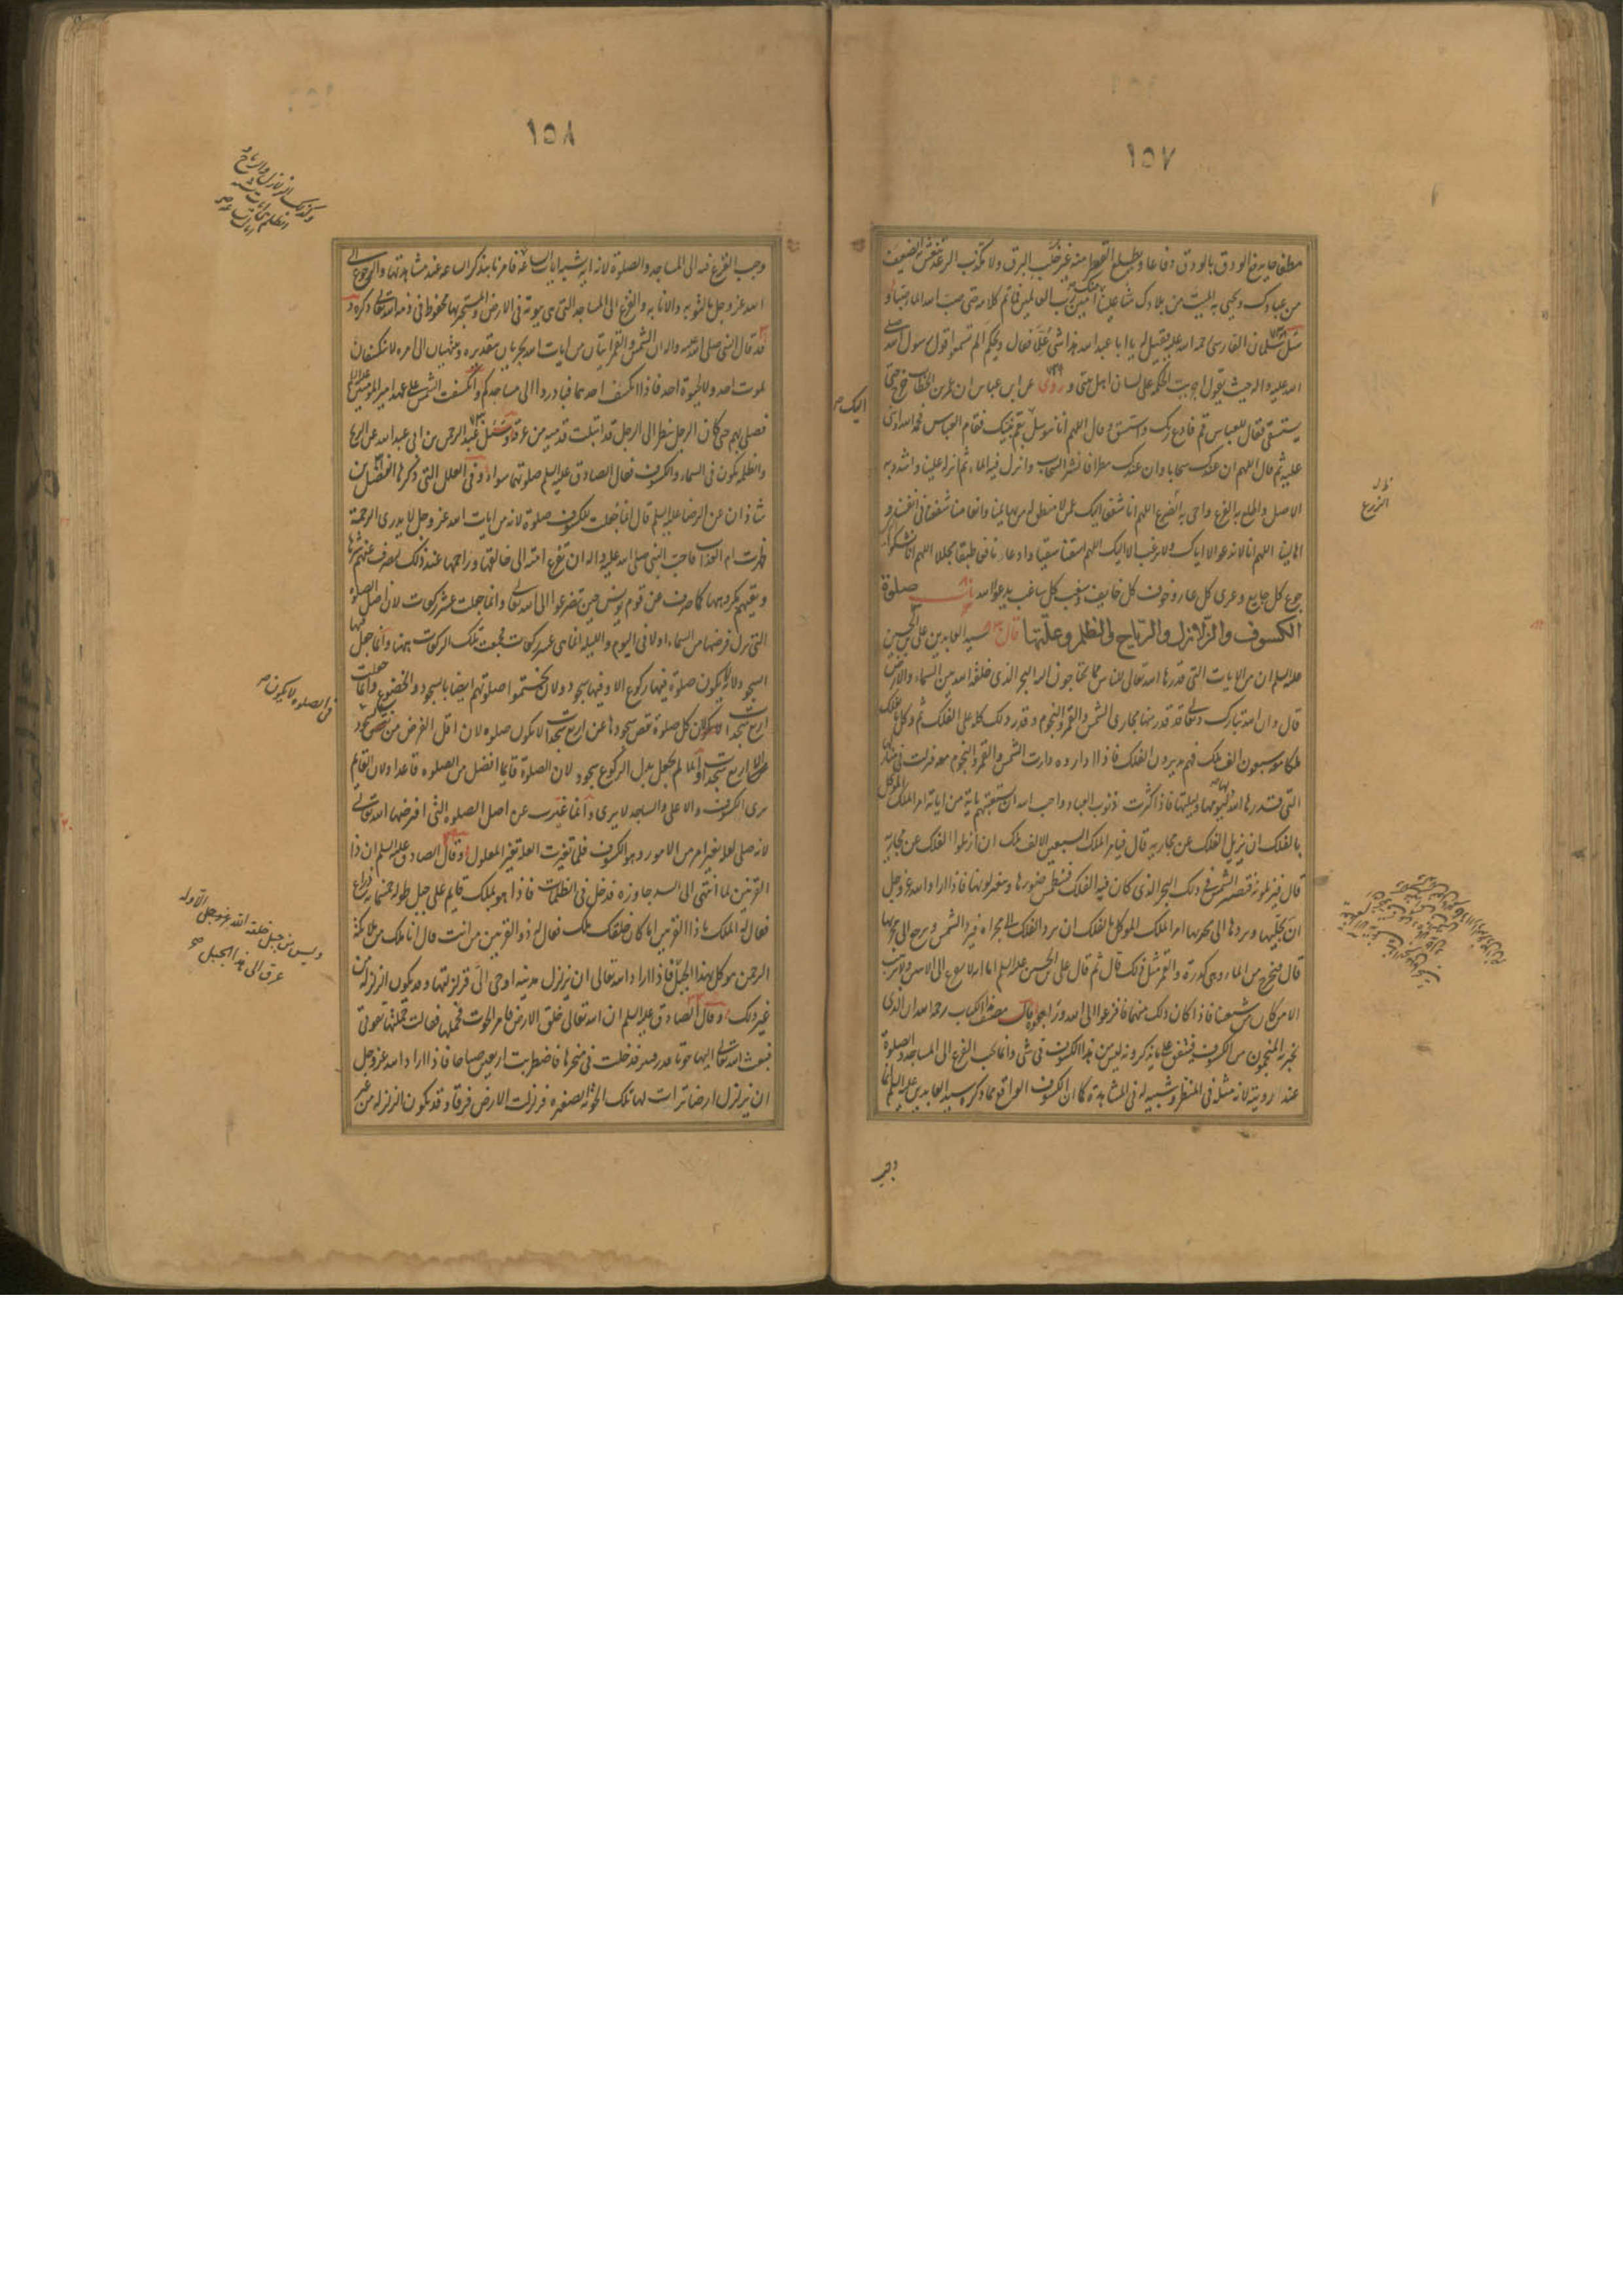 ١٥٧
من عبادك وتحيى به الميت من بلادك
سئل سلمان الفارسى رحمة الله عليه فقيل له يا ابا عبد الله هذا شئ علمته فقال ويحكم الم تسمعوا قول رسول الله صلى
الله عليه واله حيث يقول اجريت الحكمة على لسان اهل بيتى وروى عن ابن عباس ان عمر بن الخطاب خرج
يستسقى فقال للعباس قم فادع ربك واستسق وقال اللهم انا نتوسل بعم نبيك فقام العباس فحمد الله واثنى
عليه ثم قال اللهم ان عندك سحابا وان عندك مطرا فانشر السحاب وانزل فيه الماء ثم انزله علينا واشدد به
الاصل واطلع به الفرع واحى به الضرع اللهم انا شفعاء اليك عمن لا منطق له من بهايمنا وانعامنا شفعنا فى انفسنا و
اهالينا اللهم انا لا ندعو الا اياك ولا نرغب الا اليك اللهم اسقنا سقيا وادعا نافعا طبقا مجللا اللهم انا نشكو اليك
جوع كل جايع وعرى كل عار وخوف كل خايف وسغب كل ساغب يدعو الله باب صلوة
الكسوف والزلازل والرياح والظلم وعلتها قال سيد العابدين على بن الحسين
عليه السلم ان من الايات التى قدرها الله تعالى للناس مما يحتاجون اليه البحر الذى خلقه الله بين السماء والارض
قال وان الله تبارك وتعالى قد قدر منها مجارى الشمس والقمر والنجوم وقدر ذلك كله على الفلك ثم وكل بالفلك
ملكا معه سبعون الف ملك فهم يديرون الفلك فاذا اداروه دارت الشمس والقمر والنجوم معه فنزلت فى منازلها
التى قدرها الله ليومها وليلتها فاذا كثرت ذنوب العباد واحب الله ان يستعتبهم باية من اياته امر الملك الموكل
بالفلك ان يزيل الفلك عن مجاريه قال فيامر الملك السبعين الالف ملك ان ازيلوا الفلك عن مجاريه
قال فيزيلونه فتصير الشمس فى ذلك البحر الذى كان فيه الفلك فينطمس ضوءها ويتغير لونها فاذا اراد الله عز وجل
قال فتخرج من الماء وهى كدرة والقمر مثل ذلك قال ثم قال على بن الحسين عليه السلم اما انه لا يفزع الايتين ولا يرهب
الا من كان من شيعتنا فاذا كان ذلك منهما فافزعوا الى الله وراجعوه قال مصنف هذا الكتاب رحمه الله ان الذى
يخبر به المنجمون من الكسوف فيتفق على ما يذكرونه ليس من هذا الكسوف فى شئ وانما يجب الفزع الى المساجد والصلوة
عند رويته لانه مثله فى المنظر وشبيه له فى المشاهدة كما ان الكسوف الواقع مما ذكره سيد العابدين عليه السلم انما
وجب
اليك
الزرع
١٥٨
وجب الفزع فيه الى المساجد والصلوة لانه اية يشبه ايات الساعة فامرنا بتذكر الساعة عند مشاهدتها والرجوع الى
الله عز وجل بالتوبة والانابة والفزع الى المساجد التى هى بيوته فى الارض والمستجير بها محفوظ فى ذمة الله تعالى ذكره و
قد قال النبى صلى الله عليه واله ان الشمس والقمر ايتان من ايات الله يجريان بتقديره وينتهيان الى امره لا ينكسفان
لموت احد ولا لحيوة احد فاذا انكسف احدهما فبادروا الى مساجدكم وانكسفت الشمس على عهد امير المؤمنين عليه السلم
فصلى بهم حتى كان الرجل ينظر الى الرجل قد ابتلت قدميه من عرقه وسئل عبد الرحمن بن ابى عبد الله عن الريح
والظلمة تكون فى السماء والكسوف فقال الصادق عليه السلم صلوتهما سواء وفى العلل التى ذكرها الفضل بن
شاذان عن الرضا عليه السلم قال انما جعلت للكسوف صلوة لانه من ايات الله عز وجل لا يدرى الرحمة
ظهرت ام لعذاب فاحب النبى صلى الله عليه واله ان تفزع امته الى خالقها وراحمها عند ذلك ليصرف عنهم شرها
ويقيهم مكروهها كما صرف عن قوم يونس حين تضرعوا الى الله تعالى وانما جعلت عشر ركعات لان اصل الصلوة
التى نزل فرضها من السماء اولا فى اليوم والليلة انما هى عشر ركعات فجمعت تلك الركعات ههنا وانما جعل فيها
السجود لانه لا يكون صلوة فيها ركوع الا وفيها سجود ولان يختموا صلوتهم ايضا بالسجود والخضوع وانما جعلت
اربع سجدات لان كل صلوة نقص سجودها عن اربع سجدات لا يكون صلوة لان اقل الفرض من السجود
الا اربع سجدات وانما لم يجعل بدل الركوع سجود لان الصلوة قايما افضل من الصلوة قاعدا ولان القايم
يرى الكسوف والاعلى والساجد لا يرى وانما غيرت عن اصل الصلوة التى افترضها الله تعالى
لانه صلى لعلة تغير امر من الامور وهو الكسوف فلما تغيرت العلة تغير المعلول وقال الصادق عليه السلم ان ذا
القرنين لما انتهى الى السد جاوزه فدخل فى الظلمات فاذا هو بملك قايم على جبل طوله خمسمائة ذراع
فقال له الملك يا ذا القرنين اما كان خلفك مسلك فقال له ذو القرنين من انت قال انا ملك من ملائكة
الرحمن موكل بهذا الجبل فاذا اراد الله تعالى ان يزلزل مدينة اوحى الى فزلزلتها وقد يكون الزلزلة من
غير ذلك وقال الصادق عليه السلم ان الله تعالى خلق الارض فامر الحوت فحملتها فقالت حملتها بقوتى
فبعث الله تعالى اليها حوتا قدر فتر فدخلت فى منخرها فاضطربت اربعين صباحا فاذا اراد الله عز وجل
ان يزلزل ارضا تراءت لها تلك الحوتة الصغيرة فزلزلت الارض فرقا وقد يكون الزلزلة من غير
فى الصلوة لا يكون
وليس من جبل خلقه الله عز وجل الا وله
عرق الى هذا الجبل